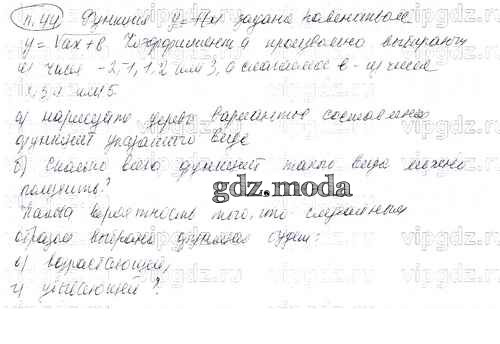 п. 44 Функция y=f(x) задана равенством
y=√ax+b. Коэффициент a произвольно выбирают
из чисел -2,-1,1,2 или 3, а слагаемое b - из чисел
или 5.
а) нарисуйте дерево вариантов составления
функций указанного вида
б) Сколько всего функций такого вида можно
получить?
gdz.moda
Какова вероятность того, что случайным
образом выбрана функция будет:
в) возрастающей,
г) убывающей?
vipgdz.ru